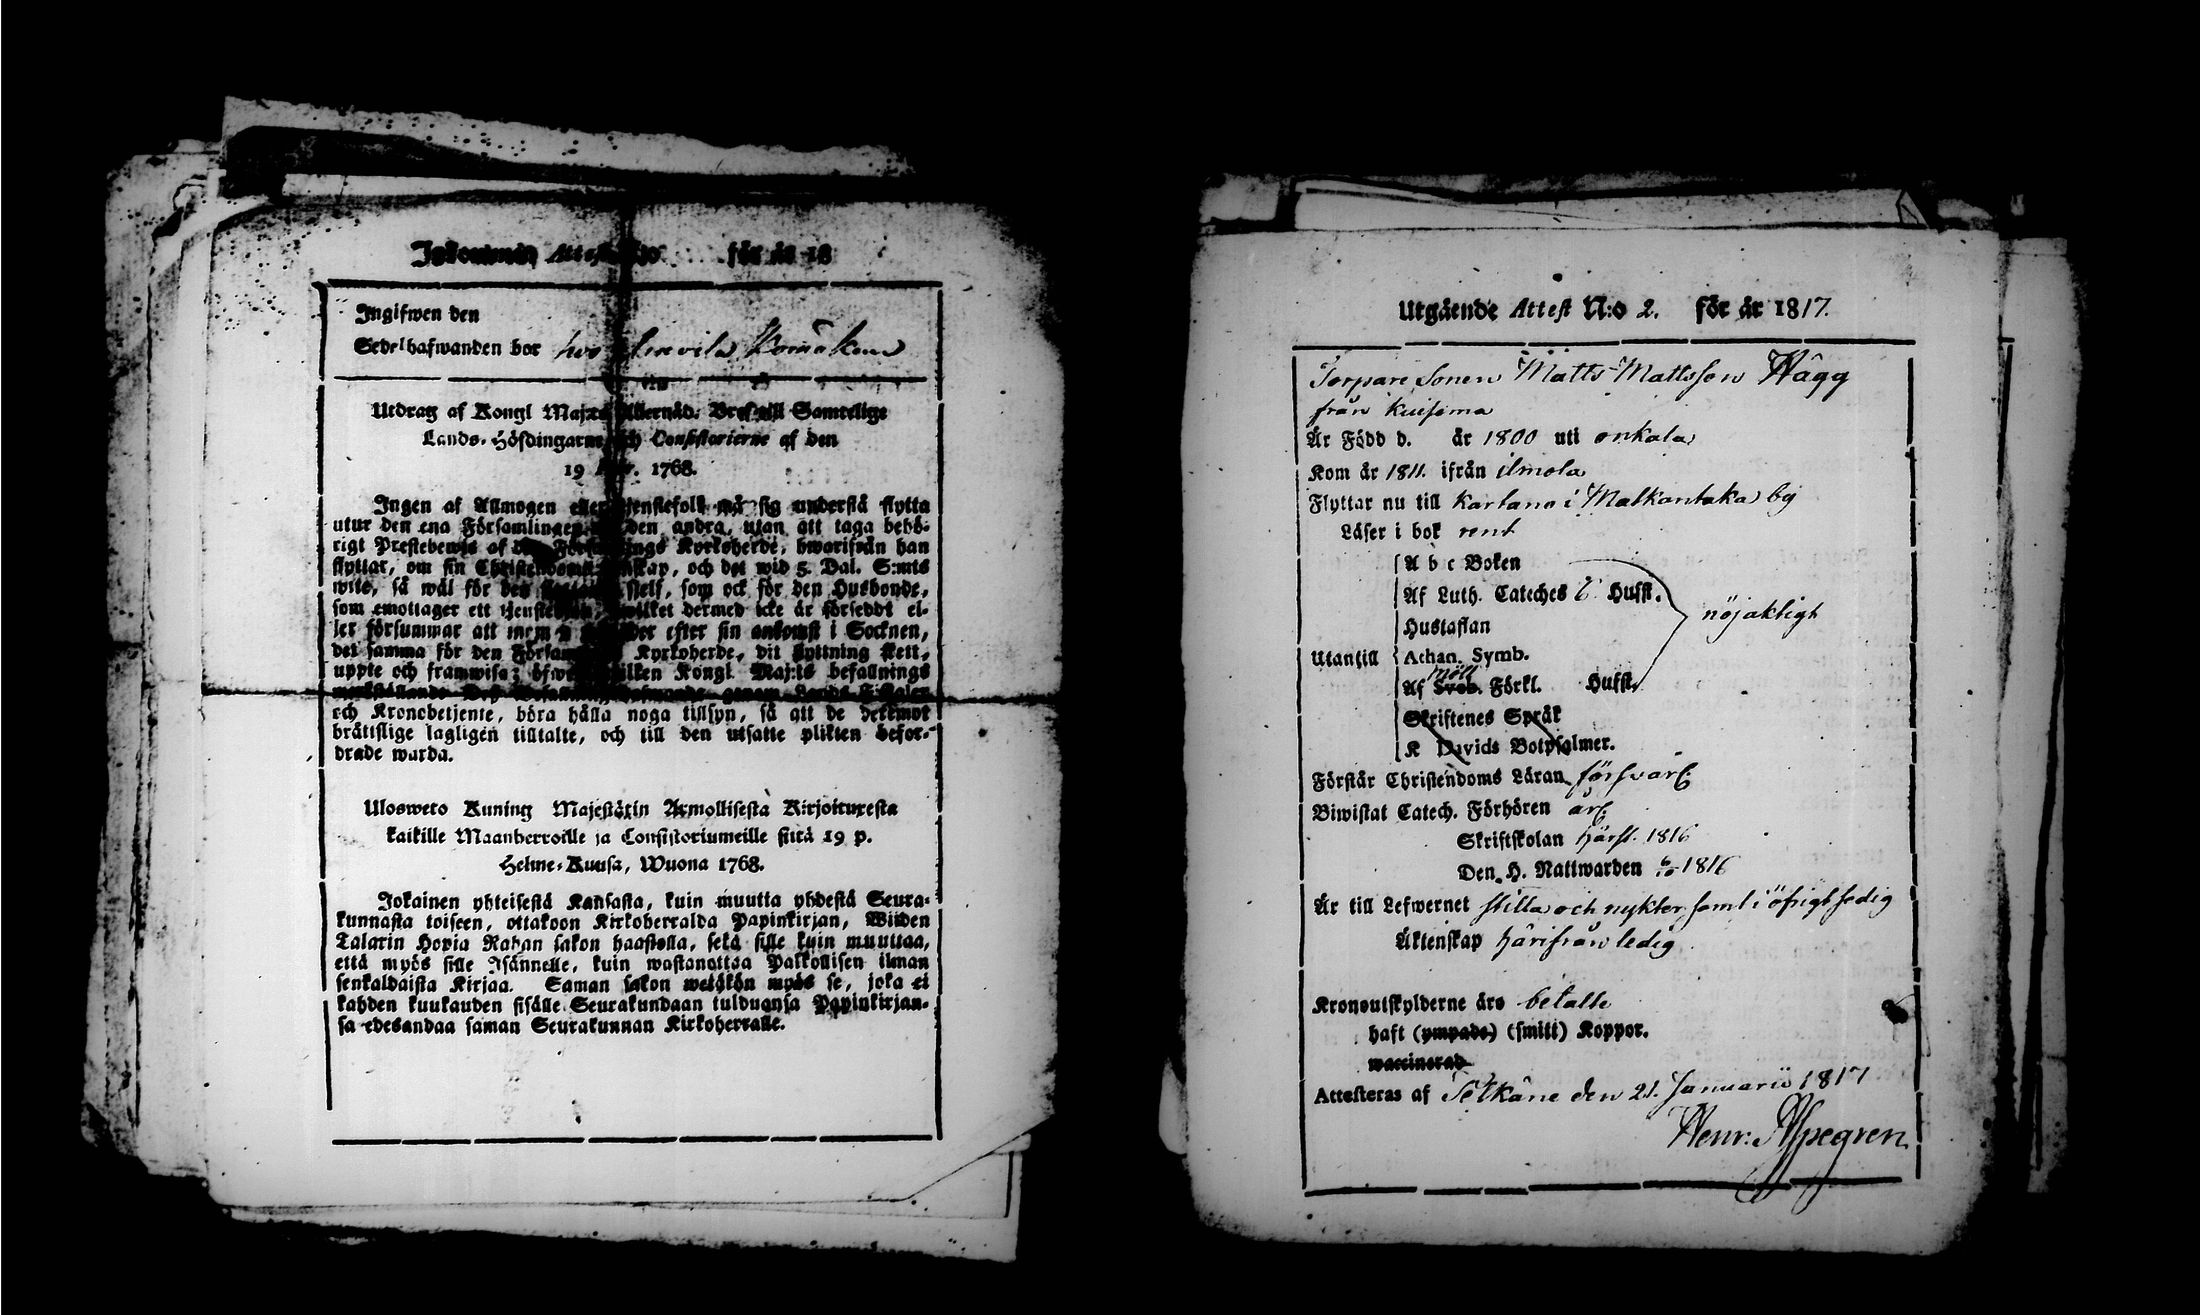 Inkommen Attest N:o för år 18
Ingifwen den
Sedelhafwanden bor hos
Utdrag af Kongl Maj:ts Allernåd. Bref till Samtelige
Lands-Höfdingarne och Consistorierne af den
19 Febr. 1768.
Ingen af Allmogen eller Tjenstefolk må sig understå flytta
utur den ena Församlingen den andra, utan att taga behö-
rigt Prestebewis af Församlings Kyrkoherde, hwarifrån han
flyttar, om sin Christendoms kap, och det wid 5. Dal. S:mts
wite, så wäl för den sjelf, som ock för den Husbonde,
som emottager ett hwilket dermed icke är försedt el-
ler försummar att efter sin ankomst i Socknen,
det samma för den Kyrkoherde, dit flyttning skett,
uppte och framwisa; öfwer hwilken Kongl. Maj:ts befallnings
och Kronobetjente, böra hålla noga tillsyn, så att de deremot
bråttslige lagligen tilltalte, och till den utsatte plikten befor-
drade warda.
Ulosweto Kuning Majestätin Armollisesta Kirjoituxesta
kaikille Maanherroille ja Consistoriumeille siitä 19 p.
Helme-Kuusa, Wuona 1768.
Jokainen yhteisestä Kansasta, kuin muutta yhdestä Seura-
kunnasta toiseen, ottakoon Kirkoherralda Papinkirjan, Wiiden
Talarin Hopia Rahan sakon haastolla, sekä sille kuin muuttaa,
että myös sille Isännelle, kuin wastanottaa Palkollisen ilman
senkaldaista Kirjaa. Saman sakon wetäkön myös se, joka ei
kahden kuukauden sisälle Seurakundaan tulduansa Papinkirjan-
sa edesandaa saman Seurakunnan Kirkoherralle.
Utgående Attest N:o 2. för år 1817.
Torpare Sonen Matts Mattsson Hägg
från Kuisema
Är Född d. år 1800 uti onkala
Kom år 1811. ifrån ilmola
Flyttar nu till Kartano i Matkantaka by
Läser i bok rent
Utantill
A b c Boken
Af Luth. Cateches Husst.
Hustaflan
Athan. Symb.
Möll
Af Sveb. Förkl. Husst.
nöjaktigt
Skriftenes Språk
K Davids Botpsalmer.
Förstår Christendoms Läran försvarl.
Biwistat Catech. Förhören årl.
Skriftskolan härst. 1816
Den H. Nattwarden 1816
Är till Lefwernet stilla och nykter samt i öfrigt sedig
Äktenskap härifrån ledig
Kronoutskylderne äro betalte
haft (ympade) (smitt) Koppor.
waccinerad
Attesteras af Pelkäne den 21. Januarii 1817
Henr: Aspegren